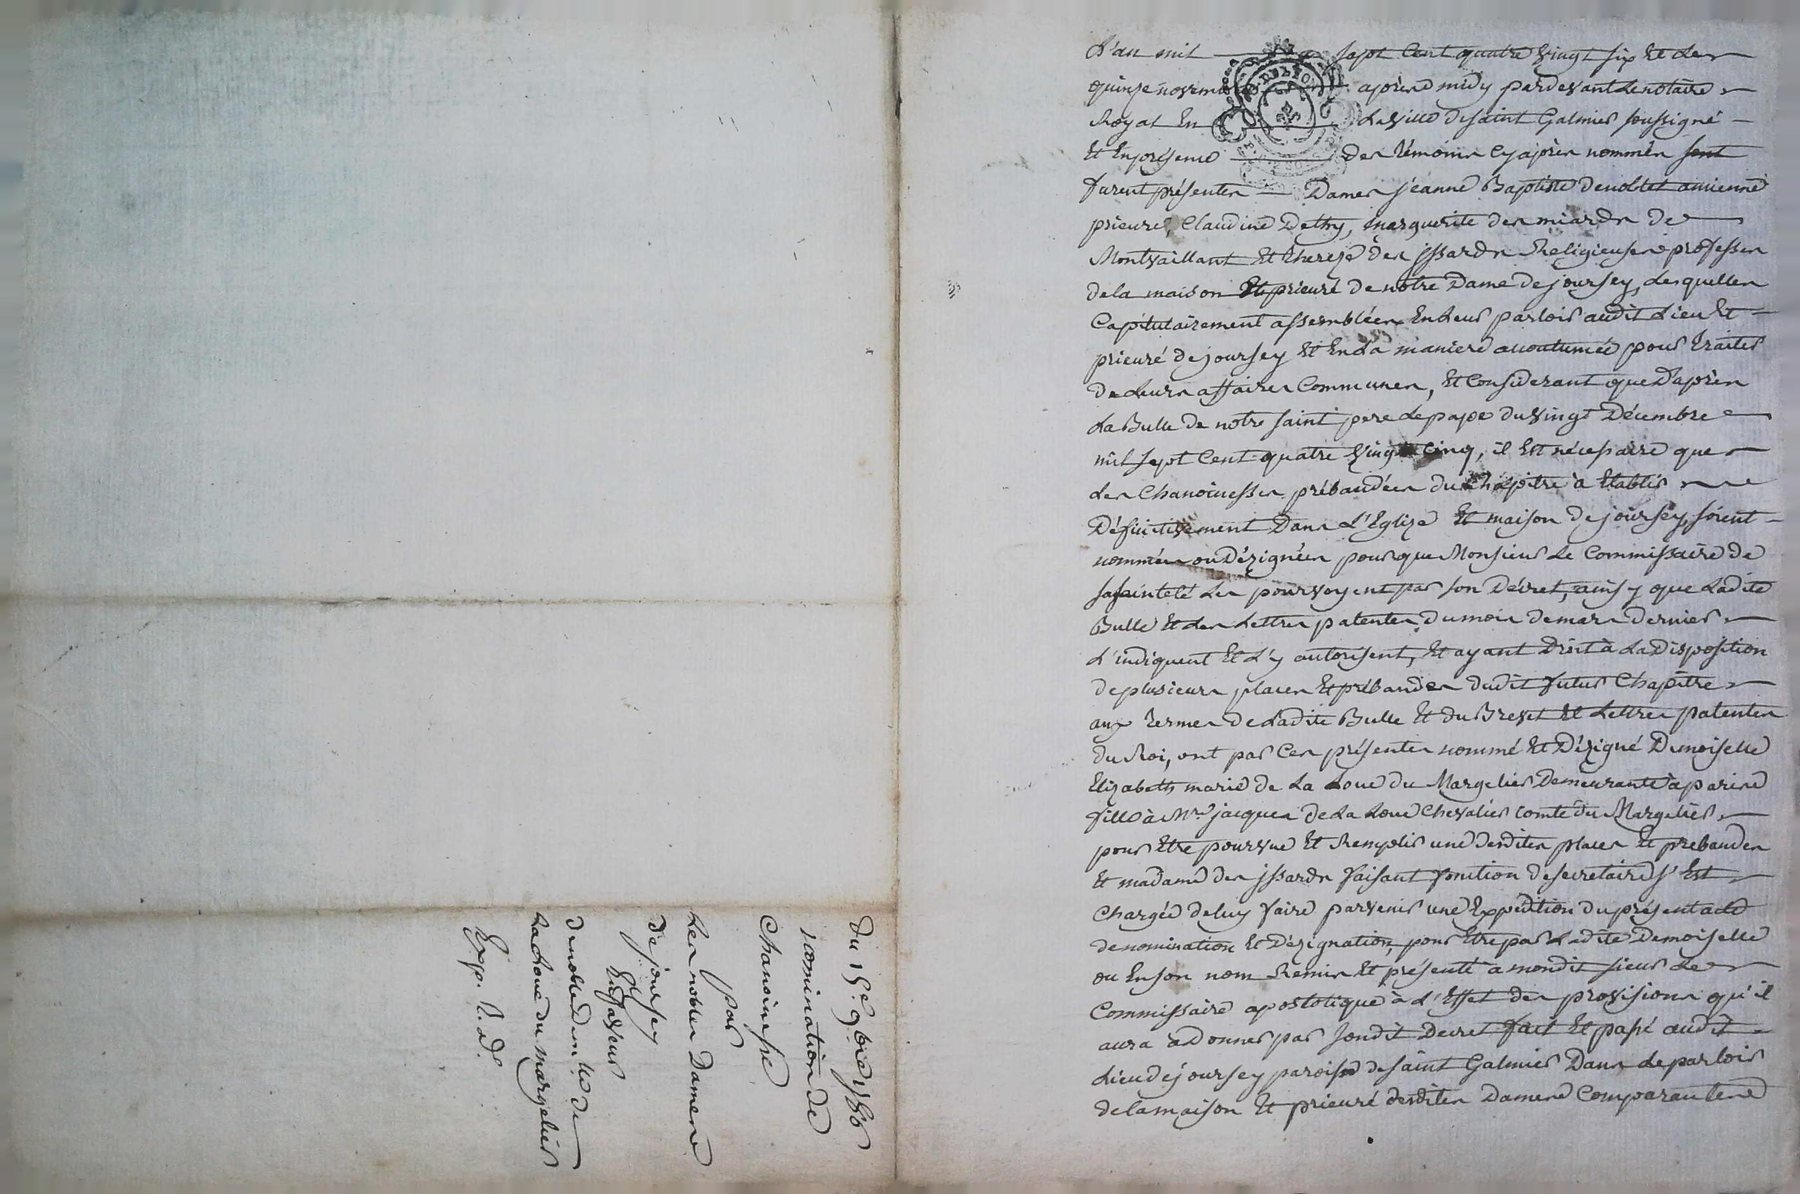 L'an mil sept Cent quatre vingt six Et Le
quinze novembre après midy pardevant Le notaire
Royal En La ville de saint Galmier soussigné
Et En présence des témoins cy après nommés sont
furent présentes Dames jeanne Baptiste denoblet ancienne
prieure, Claudine Dethy, marguerite des miards de
Montvaillant Et thereze des jssards Religieuses professes
de la maison Et prieuré de notre Dame de joursey, Lesquelles
Capitulairement assemblées En Leur parloir audit Lieu Et
prieuré de joursey Et En La maniere accoutumée pour traiter
de Leurs affaires Communes, Et Considerant que D'après
La Bulle de notre saint pere Le pape du vingt Décembre
mil sept Cent quatre vingt Cinq, il Est nécessaire que
les Chanoinesses prébandées du Chapitre à Etablir
Définitivement Dans L'Eglize Et maison de joursey, soient
nommées ou Dézignées pour que Monsieur Le Commissaire de
sa sainteté Les pourvoyent par son Décret, ainsy que Ladite
Bulle Et Les Lettres patentes du mois de mars dernier
L'indiquent Et L'y autorisent, Et ayant Droit à La Disposition
de plusieurs places Et prébandes dudit futur Chapitre
aux termes de Ladite Bulle Et du Brevet Et Lettres patentes
du Roi, ont par Ces présentes nommé Et Dézigné Demoiselle
Elizabeth marie de La Loue du Margelier Demeurante à
fille à Mre jacques de La Loue Chevalier comte du Margelier
pour Etre pourvue Et Remplir une desdites places Et prebandes
Et madame des jssards faisant fonction de secretaire s'Est
Chargée de luy faire parvenir une Expédition du présent acte
de nomination Et Dézignation, pour Etre par Ladite Demoiselle
ou En son nom Remis Et présenté à mondit sieur Le
Commissaire apostolique à L'Effet des provisions qu'il
aura à donner par sondit Decret fait Et passé audit
Lieu de joursey paroisse de saint Galmier Dans Le parloir
de la maison Et prieuré desdites Dames Comparantes
du 15e 9bre 1786
nomination de
Chanoinesse
par
Les nobles Dames
de joursey
En faveur
de noble demlle de
La Loue du margelier
Exp. R. D.